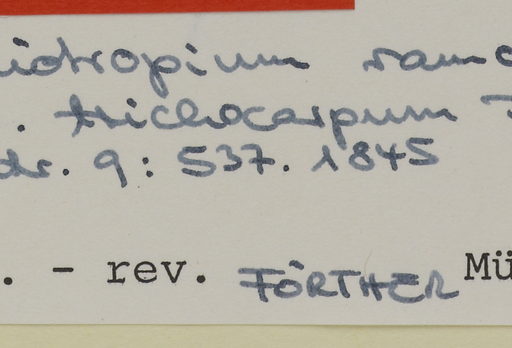 iotropium ramo
. trichocarpum
dr. 9: 537. 1845
. - rev. FÖRTHER Mü